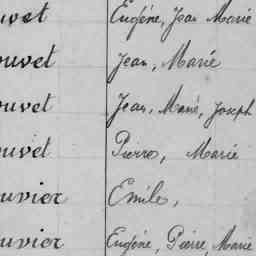 uvet Eugéne, Jean Marié
ouvet Jean, Marié
ouvet Jean, Marié, Joseph
ouvet Pierre, Marie
ouvier Emile,
ouvier Eugéne, Pierre, Marie